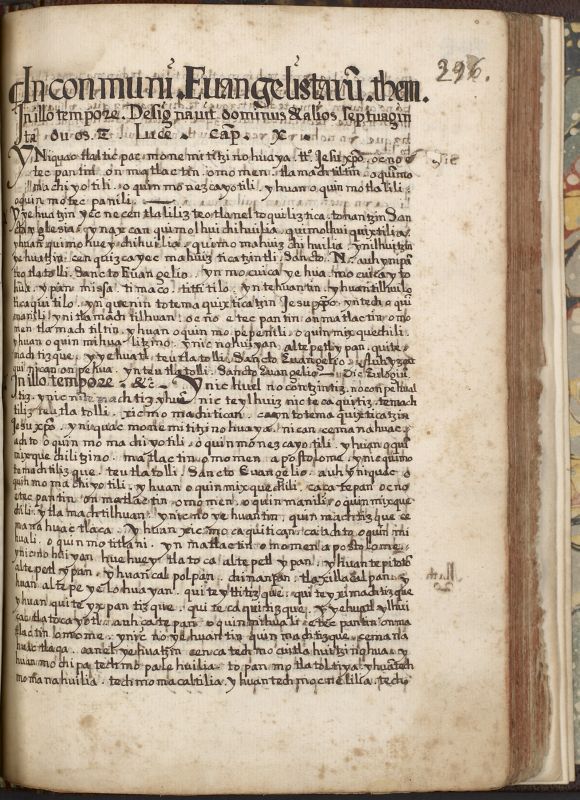 296.
In conmuni. Euangelistarũ. them.
In illo tempore. Designauit dominus & alios septuagin
ta duos. Luce. cap. X.
Yniquac tlalticpac monemititzinohuaya. tto Jesu xpo. oc no e
tecpantin on matlactin omomen. tlamachtiltin. oquimo
machiyotili. oquinmonezcayotili. yhuan oquinmotlalili.
oquinmotecpanili.
Yyehuatzin yecnecentlaliliz teotlaneltoquiliztica. tonantzin San
cta yglesia. ynaxcan quimolhuichihuilia. quimolhuiquixtilia.
yhuan quimohueychihuilia. quimomahuizchihuilia. ynilhuitzin
yehuatzin. cenquizcayecmahuizticatzintli. Sancto. N. auh ynipã
teotlatolli. Sancto Euangelio. yn mocuica yehua. mocuicayto
hua. ypan missa. timaco. yn tehuantin. yhuan
ticaquitilo. yn quenin totemaquixticatzin Jesu xpo. yntech oqui
manili. ynitlamachtilhuan. oc no etecpantin on matlactin omo
men tlamachtiltin. yhuan oquinmopepenili. oquinmixquechili.
yhuan oquinmihualitzino. ynic nohuiyan altepetlypan. quite
machtizque. yyehuatl teutlatolli. Sancto Euangelio. auh yzca
qui nican onpehua. yn teutlatolli. Sancto Euangelio. Dic Euãgeliũ.
In illo tempore. &c. Ynic huel nocontzintiz. noconpehual
tiz. ynic nitemachtiz yhuã ynic teylhuiz nictecaquitiz. temach
tiliz teutlatolli. xicmomachitican. ca yn totemaquixticatzin
Jesu xpo. yniquac monemititzinohuaya. nican cemanahuac.
achto oquinmomachiyotili. oquinmonezcayotili. yhuan oquĩ
mixquechilitzino. matlactin omomen apostolome. ynic quimo
temachtilizque. teutlatolli. Sancto Euangelio. auh yniquac o
quinmomachiyotili. yhuan oquinmixquechili. ca çatepan oc no
etecpantin on matlactin omomen. oquinmanili. oquinmixque
chili. ytlamachtilhuan. ynic no yehuantin. quinmachtizque ce
manahuac tlaca. yhuan xicmocaquitican. ca achto oquinmi
huali. oquinmotitlani. yn matlactin omomen apostolome.
ynic nohuiyan huehuey tlatoca altepetl ypan. yhuan tepitoto
altepetl ypan. yhuan calpolpan. chinanpan. tlaxillacalpan. y
huan altepeyelohuayan. quiteyttitizque. quiteyximachtizque
yhuan quiteyxpantizque. quitecaquitizque. yyehuatl ylhui
cac tlatocayotl. auh çatepan oquinmihuali. etecpantin onma
tlactin lomome. ynic no yehuantin quinmachtizque. cemana
huac tlaca. ca nel yehuatzin cenca techmocuitlahuitzinohua. y
huan mochipa techmopalehuilia. topanmotlatoltiya. yhuã tech
momanahuilia. techmomacaltilia. yhuan techmocnelilia. tech